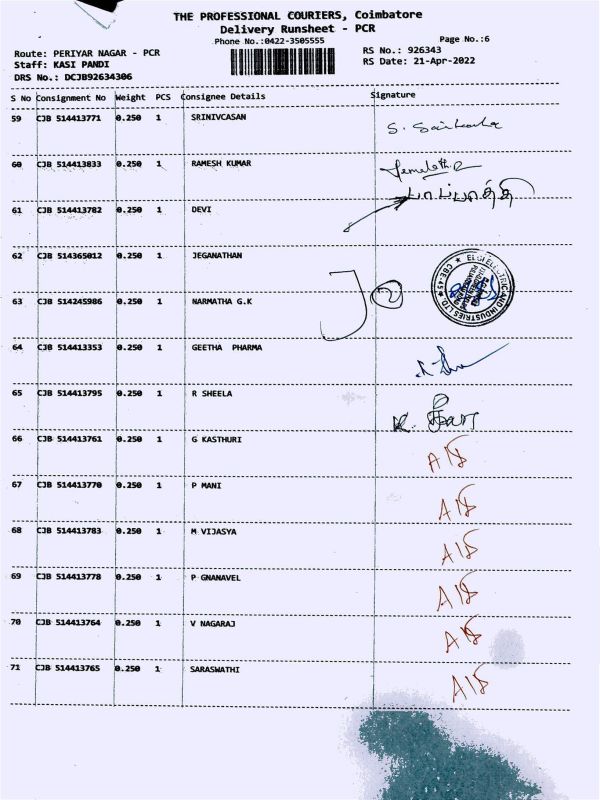 THE PROFESSIONAL COURIERS, Coimbatore
Delivery Runsheet - PCR
Phone No.:0422-3505555
Page No.:6
Route: PERIYAR NAGAR - PCR
RS No.: 926343
Staff: KASI PANDI
RS Date: 21-Apr-2022
DRS No.: DCJB92634306
S No Consignment No Weight PCS Consignee Details Signature
59 CJB 514413771 0.250 1 SRINIVCASAN
60 CJB 514413833 0.250 1 RAMESH KUMAR
61 CJB 514413782 0.250 1 DEVI
62 CJB 514365012 0.250 1 JEGANATHAN
63 CJB 514245986 0.250 1 NARMATHA G.K 2
64 CJB 514413353 0.250 1 GEETHA PHARMA
65 CJB 514413795 0.250 1 R SHEELA
66 CJB 514413761 0.250 1 G KASTHURI
67 CJB 514413770 0.250 1 P MANI
68 CJB 514413783 0.250 1 M VIJASYA
69 CJB 514413778 0.250 1 P GNANAVEL
70 CJB 514413764 0.250 1 V NAGARAJ
71 CJB 514413765 0.250 1 SARASWATHI